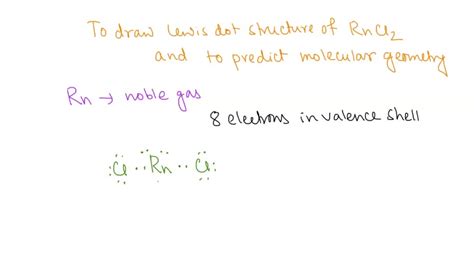 To draw Lewis dot structure of RnCl2
and to predict molecular geometry
Rn → noble gas
8 electrons in valence shell
:Cl··Rn··Cl: